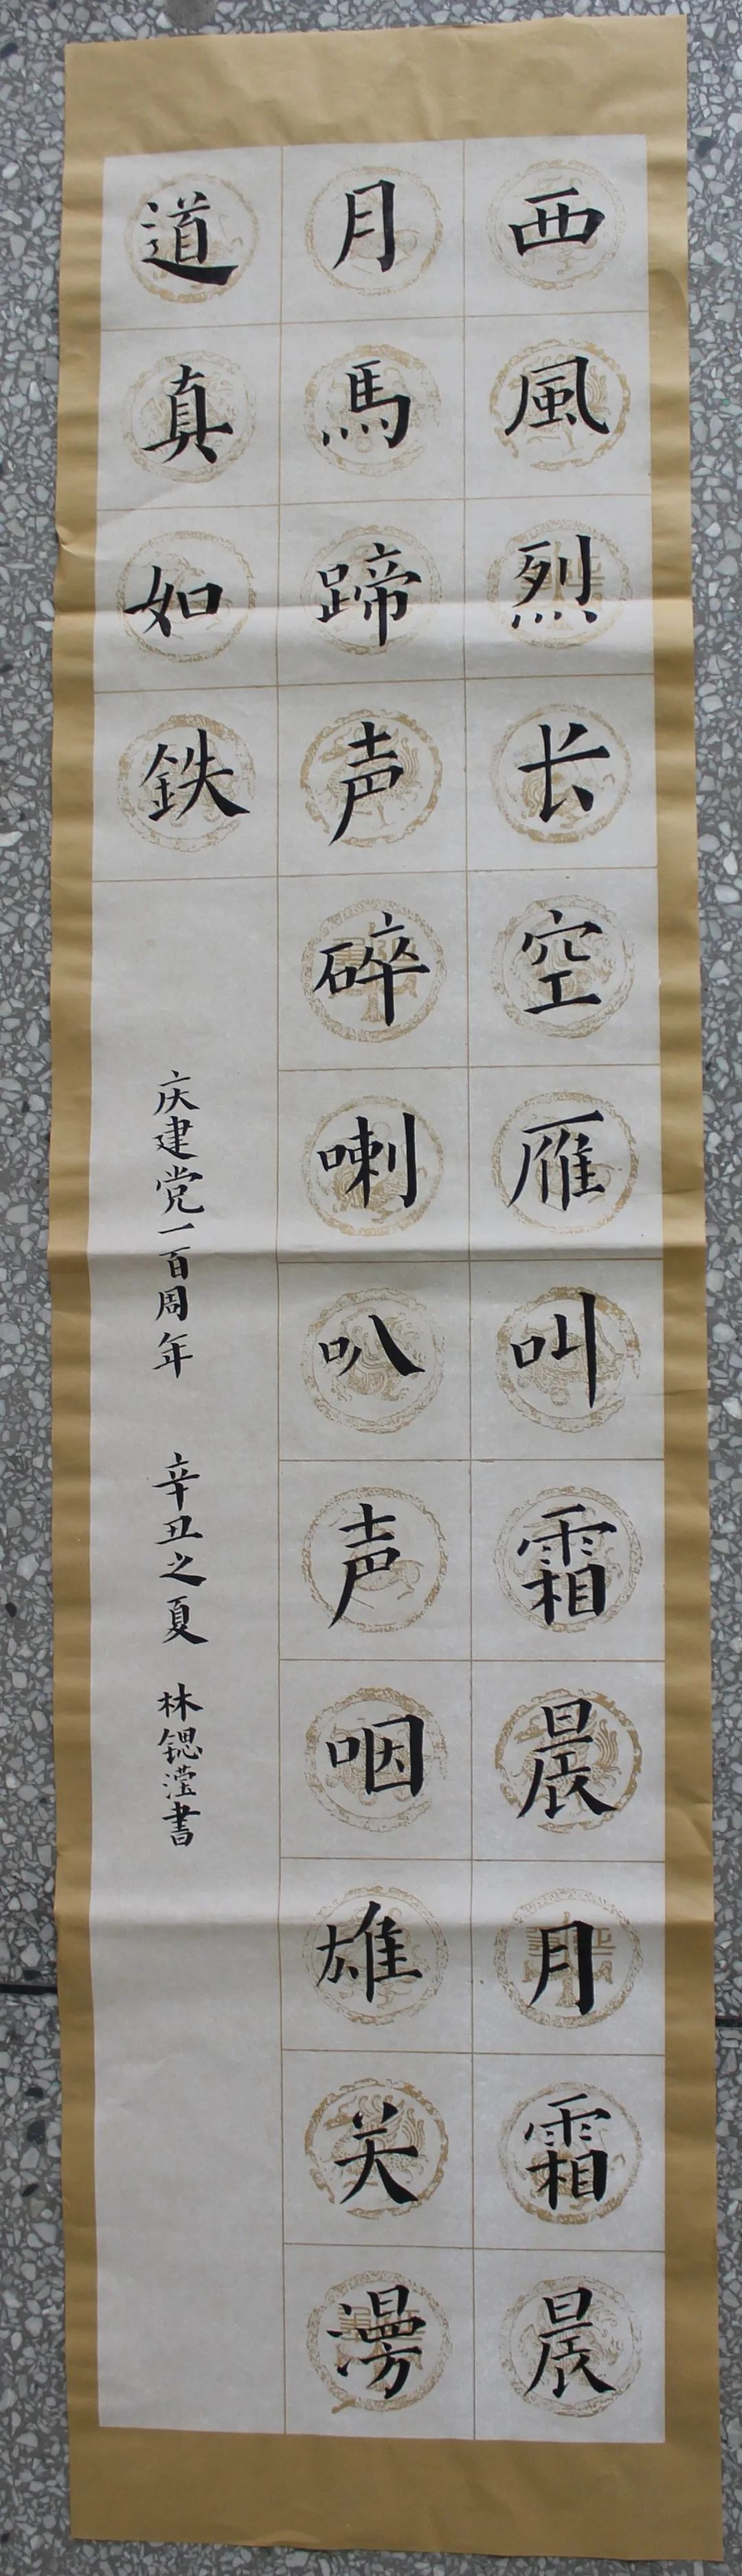 西風烈长空雁叫霜晨月霜晨
月馬蹄声碎喇叭声咽雄关漫
道真如鉄
庆建党一百周年 辛丑之夏 林锶滢書